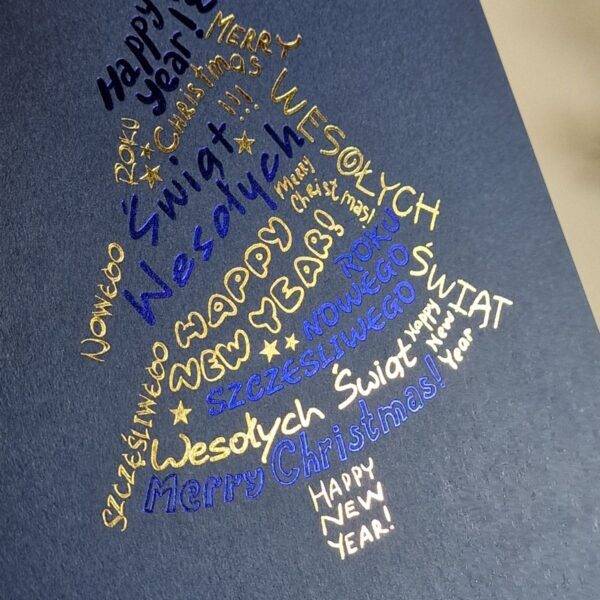 Happy
Year!
MERRY
CHRISTMAS
!!!
ROKU
WESOŁYCH
ŚWIĄT
Świąt
Wesołych
Merry
Christmas!
NOWEGO
HAPPY
NEW YEAR!
ROKU
NOWEGO
SZCZĘŚLIWEGO
Happy
New
Year
SZCZĘŚLIWEGO
Wesołych Świąt
Merry Christmas!
HAPPY
NEW
YEAR!